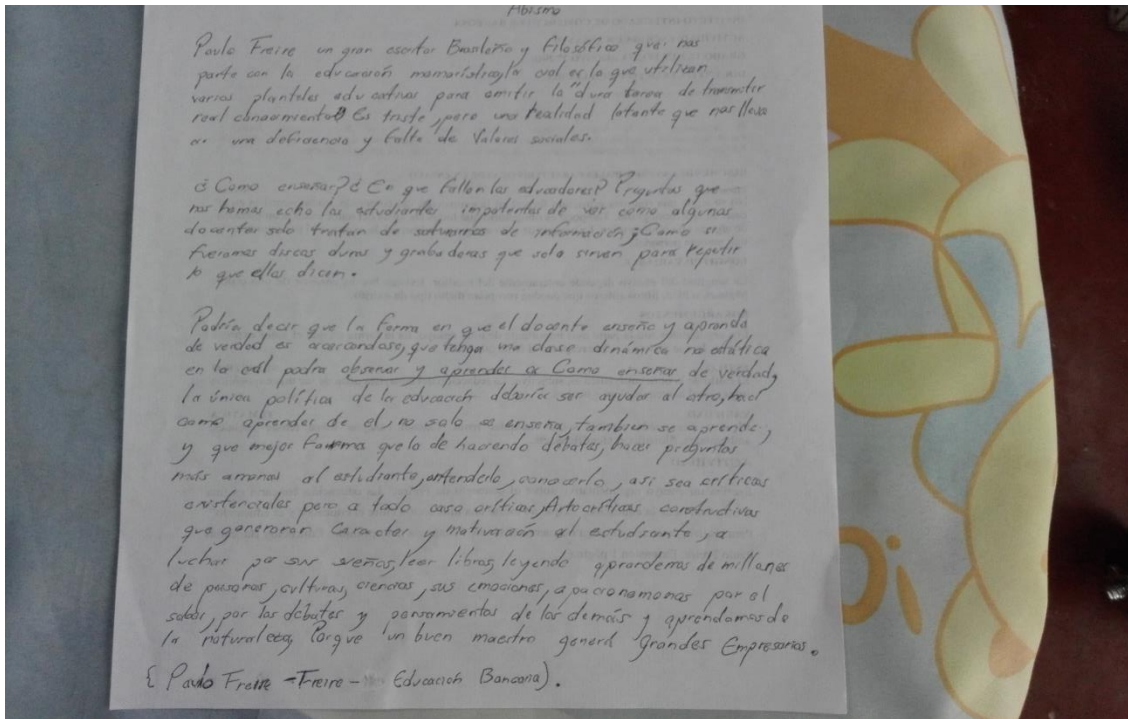 Abismo
Paulo Freire un gran escritor Brasileño y filosófico que nos
parte con la educación memorística, la cual es la que utilizan
varios planteles educativos para emitir la "dura tarea de transmitir
real conocimiento" Es triste, pero una realidad latante que nos lleva
a una deficiencia y falta de Valores sociales.
¿Como enseñar? ¿En que fallan los educadores? Preguntas que
nos hemos echo los estudiantes impotentes de ver como algunos
docentes solo tratan de saturarnos de información ¡Como si
fueramos discos duros y grabadoras que solo sirven para repetir
lo que ellos dicen.
Podría decir que la forma en que el docente enseñe y aprenda
de verdad es acercandose, que tenga una clase dinámica no estática
en la cual podra observar y aprender a Como enseñar de verdad,
la única política de la educación debería ser ayudar al otro,
como aprender de el, no solo se enseña, tambien se aprende,
y que mejor forma que la de haciendo débates, hacer preguntas
más amenas al estudiante, entenderlo, conocerlo, asi sea críticas
existenciales pero a todo caso críticas, Artocríticas constructivas
que generaran Caracter y motivación al estudiante, a
luchar por sus sueños, leer libros, leyendo aprendemos de millones
de personas, culturas, ciencias, sus emociones, apacionamonos por el
saber, por los débates y pensamientos de los demás y aprendamos de
la naturaleza, Porque un buen maestro generá grandes Empresarios.
{ Paulo Freire - Freire - Educación Bancaria).
Di